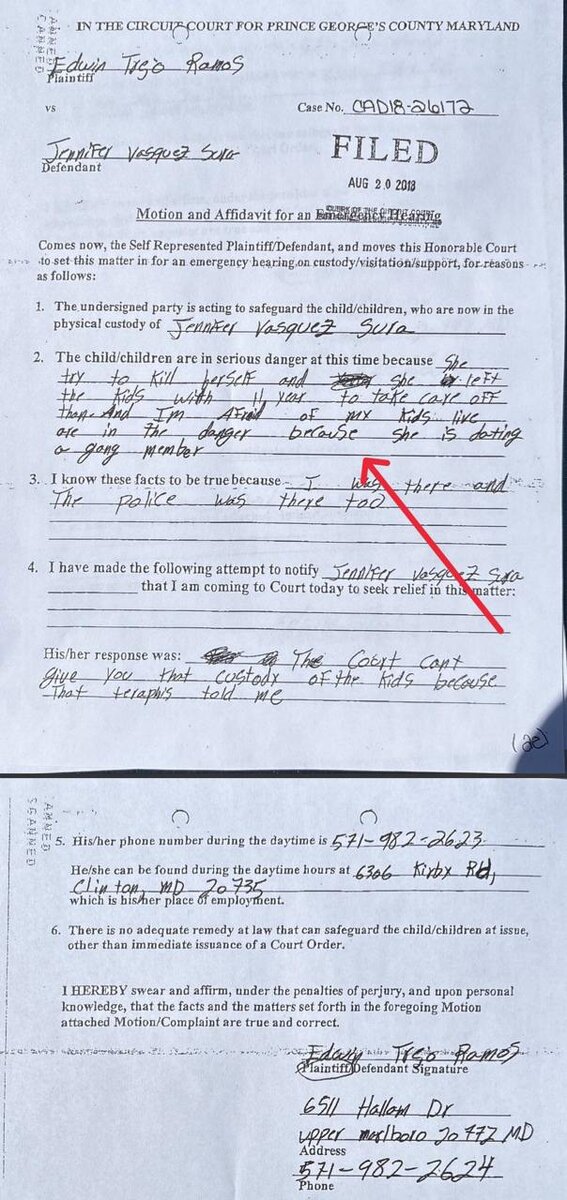 IN THE CIRCUIT COURT FOR PRINCE GEORGE'S COUNTY MARYLAND
Edwin Trejo Ramos
Plaintiff
vs
Case No. CAD18-26172
Jennifer Vasquez Sura
Defendant
FILED
AUG 20 2018
Motion and Affidavit for an Emergency Hearing
Comes now, the Self Represented Plaintiff/Defendant, and moves this Honorable Court
to set this matter in for an emergency hearing on custody/visitation/support, for reasons
as follows:
1. The undersigned party is acting to safeguard the child/children, who are now in the
physical custody of Jennifer Vasquez Sura
2. The child/children are in serious danger at this time because She
try to kill herself and she left
the kids with 11 year to take care off
them. And I'm Afraid of my kids live
are in the danger because she is dating
a gang member
3. I know these facts to be true because I was there and
The police was there too
4. I have made the following attempt to notify Jennifer Vasquez Sura
that I am coming to Court today to seek relief in this matter:
His/her response was: The Court cant
give you that custody of the kids because
that teraphis told me
SCANNED
5. His/her phone number during the daytime is 571-982-2623
He/she can be found during the daytime hours at 6306 Kirby Rd,
Clinton, MD 20735
which is his/her place of employment.
6. There is no adequate remedy at law that can safeguard the child/children at issue,
other than immediate issuance of a Court Order.
I HEREBY swear and affirm, under the penalties of perjury, and upon personal
knowledge, that the facts and the matters set forth in the foregoing Motion
attached Motion/Complaint are true and correct.
Edwin Trejo Ramos
Plaintiff/Defendant Signature
6511 Hallam Dr
upper marlboro 20772 MD
Address
571-982-2624
Phone